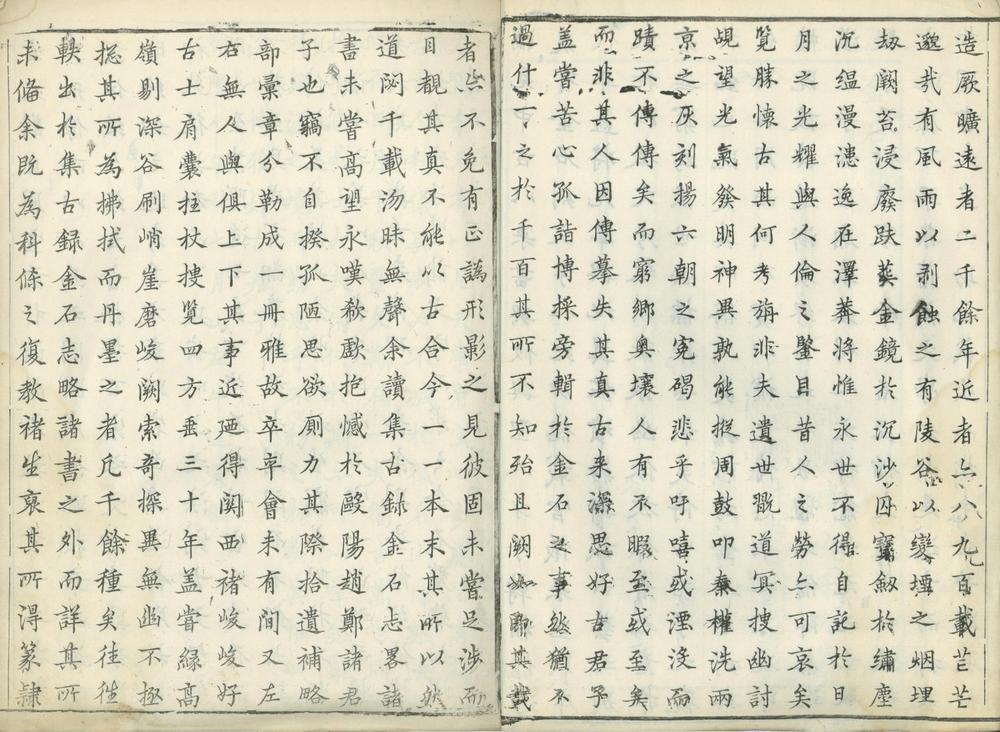 造厥曠遠者二千餘年近者六八九百載芒芒
邈哉有風雨以剥蝕之有陵谷以變堙之烟埋
劫闕苔浸廢趺葬金鏡於沉沙囚寳劒於繡塵
沉煴漫漶逸在澤莽將惟永世不得自託於日
月之光耀與人倫之鑒目昔人之勞亦可哀矣
覧勝懐古其何考旃非夫遺世翫道冥搜幽討
覘望光氣發明神異孰能摐周鼓叩秦權洗兩
京之灰刻揚六朝之寃碣悲乎吁嘻或湮沒而
蹟不傳傳矣而窮鄉奥壤人有不暇至或至矣
而非其人因傳摹失其真古来深思好古君予
盖嘗苦心孤詣博採旁輯於金石之事然猶不
過什一之於千百其所不知殆且闕如聊其載
者亦不免有正譌形影之見彼固未嘗足渉而
目覩其真不能以古合今一一本末其所以然
道闵千載汤昧無聲余讀集古録金石志畧諸
書未嘗髙望永嘆欷歔抱憾於毆陽趙鄭諸君
子也竊不自揆孤陋思欲厠力其際拾遺補略
部彙章分勒成一冊雅故卒卒會未有間又左
右無人與俱上下其事近廼得関西褚峻峻好
古士肩嚢拄杖搜覧四方垂三十年盖嘗緣髙
嶺剔深谷刷峭崖磨峻闕索奇探異無幽不極
捴其所為拂拭而丹墨之者凢千餘種矣往徃
軼出於集古録金石志略諸書之外而詳其所
未偹余既為科條之復教褚生裒其所淂篆隷